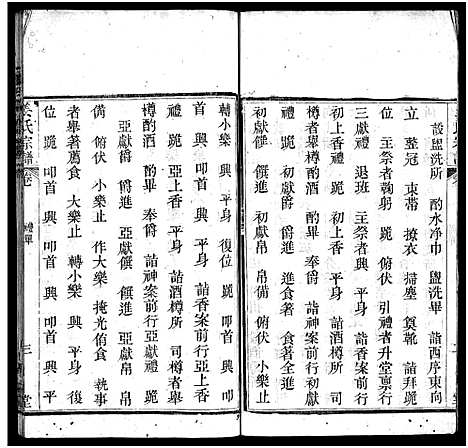 設盥洗所 酌水净巾 盥洗畢 詣西序東向
立 整冠 束帶 撩衣 掃塵 奠靴 詣拜毙
位 主祭者鞠躬 毙 俯伏 引禮者升堂禀行
三獻禮 退班 主祭者興 平身 詣酒樽所 司
樽者舉樽酌酒 奉爵 詣神案前行初獻禮 毙
初獻爵 爵進 初獻饌 饌進 進食箸 食箸全進
饌備 俯伏 初獻帛 帛 小樂止
轉小樂 興 平身 復位 毙 叩首 興 叩
首 興 叩首 興 平身 詣香案前行亞上香
禮 毙 亞上香 興 平身 詣酒樽所 司樽者舉
樽酌酒 酌畢 奉爵 詣神案前行亞獻禮 毙
亞獻爵 爵進 亞獻饌 饌進 亞獻帛 帛
備 俯伏 小樂止 作大樂 掩光侑食 執事
者舉著薦食 大樂止 轉小樂 興 平身 復
位 毙 叩首 興 叩首 興 叩首 興 平
姜氏宗譜 卷 禮單 三 堂